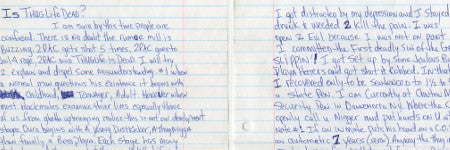 Is THUG LIFE DEAD?
I am sure by this time people are
confused. There is no doubt the rumor mill is
buzzing. 2PAC gets shot 5 times, 2PAC goes to
jail 4 rape, 2PAC said ThugLife is Dead. I will try
2 explain and dispel some misunderstanding. When
a normal man mentions his existence it begins with
Childhood Teenager, Adult Hood
most blackmales examine their lives especially those
of us from ghetto upbringing realize this is not our development
stages. Ours begins with a young Dusthustler,
then finally a Boss playa. Each stage has many
I got distracted by my depression and I stayed
drunk & weeded 2 kill the pain. I was
open 2 Evil because I was not on point
I committed the First deadly sin of the Game
SLIPPIN'! I got set up by some Jealous
Playa Haters and got shot & Robbed. Further
I recovered only to be sentenced to 1½ to
in State Pen. I am Currently at Clinton
Security Pen in Dannemora N.Y. Where the
openly call u Nigger and put hands on U at
Note #1 If an inmate puts his hand on a C.O.
an automatic 7 years (asm) Anyway the thug in